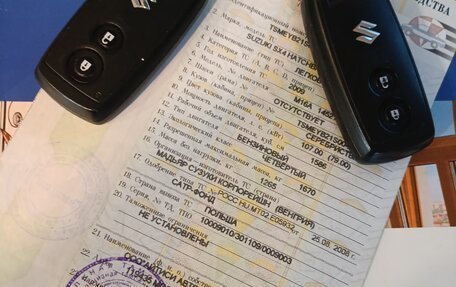 ДСТВА
2. Марка, модель ТС
SUZUKI SX4 HATCHB
3. Наименование (тип ТС)
ЛЕГКОВ
4. Категория ТС (A, B, C, D, прицеп)
5. Год изготовления ТС 2009
6. Модель, № двигателя M16A
7. Шасси (рама) № ОТСУТСТВУЕТ
8. Кузов (кабина, прицеп) №
9. Цвет кузова (кабины, прицепа) СЕРЕБРИСТ
10. Мощность двигателя, л. с. (кВт) 107.00 (79.00)
11. Рабочий объем двигателя, куб. см 1586
12. Тип двигателя БЕНЗИНОВЫЙ
13. Экологический класс ЧЕТВЕРТЫЙ
14. Разрешенная максимальная масса, кг 1670
15. Масса без нагрузки, кг 1265
16. Организация - изготовитель ТС (страна)
МАДЬЯР СУЗУКИ КОРПОРЕЙШН (ВЕНГРИЯ)
17. Одобрение типа ТС № РОСС HU.MT02.E05932 25.08.2008 г.
САТР-ФОНД
18. Страна вывоза ТС ПОЛЬША
19. Серия, № ТД, ТПО 10009010/301109/0009003
20. Таможенные ограничения
НЕ УСТАНОВЛЕНЫ
21. Наименование (ф. и. о.) собственника